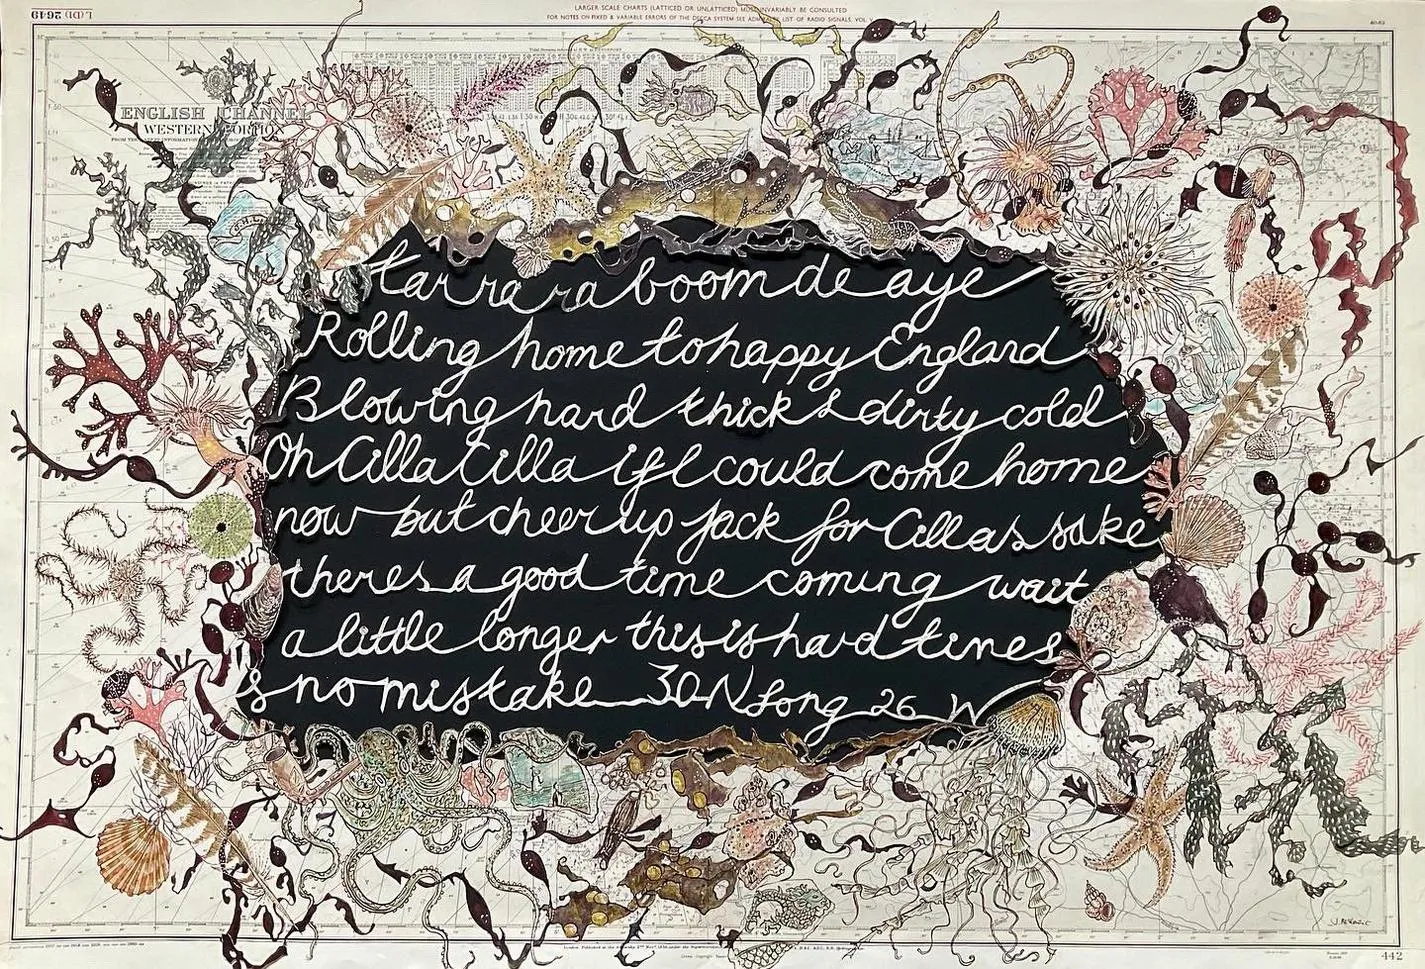 L(D1) 2649
LARGER SCALE CHARTS (LATTICED OR UNLATTICED) MUST INVARIABLY BE CONSULTED
FOR NOTES ON FIXED & VARIABLE ERRORS OF THE DECCA SYSTEM SEE ADMIRALTY LIST OF RADIO SIGNALS, VOL. V
ENGLISH CHANNEL
WESTERN PORTION
tarrara boom de aye
Rolling home to happy England
Blowing hard thick & dirty cold
Oh Cilla Cilla if I could come home
now but cheer up Jack for Cillas sake
theres a good time coming wait
a little longer this is hard times
& no mistake 30 N Long 26 W
442